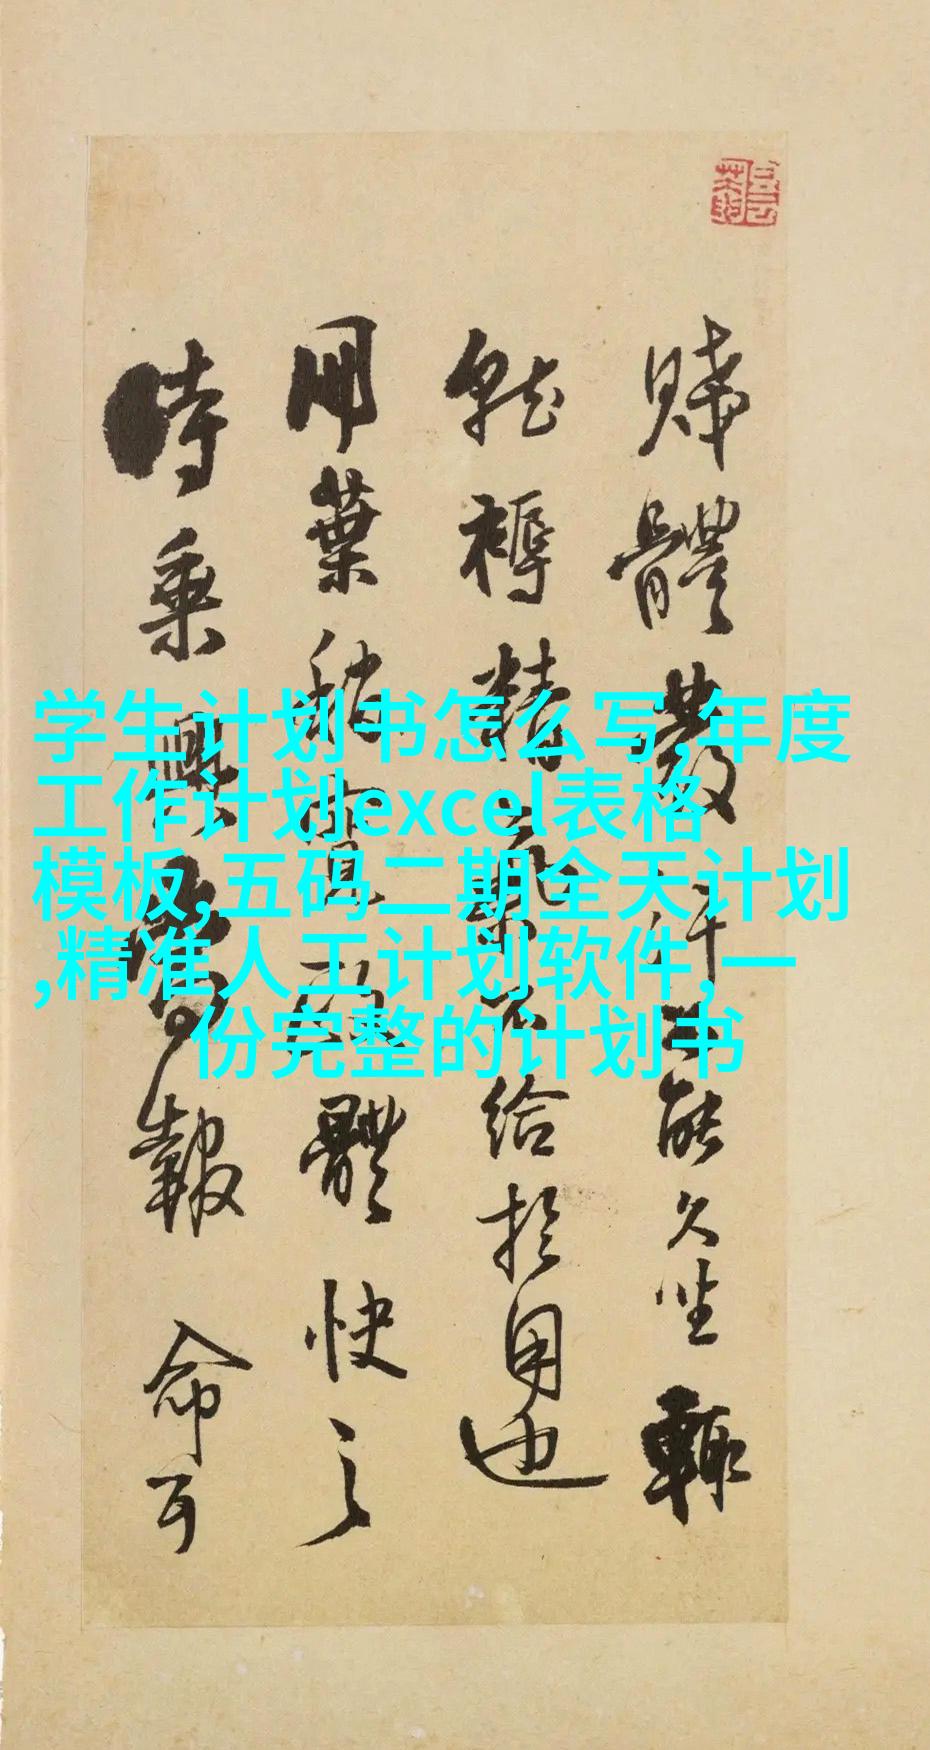 学生计划书怎么写,年度
工作计划excel表格
模板,五码二期全天计划
,精准人工计划软件,一
份完整的计划书
體發汗不能久坐輙
就褥精氣不給於用也
用葉 體快之
時乗興 報命耳